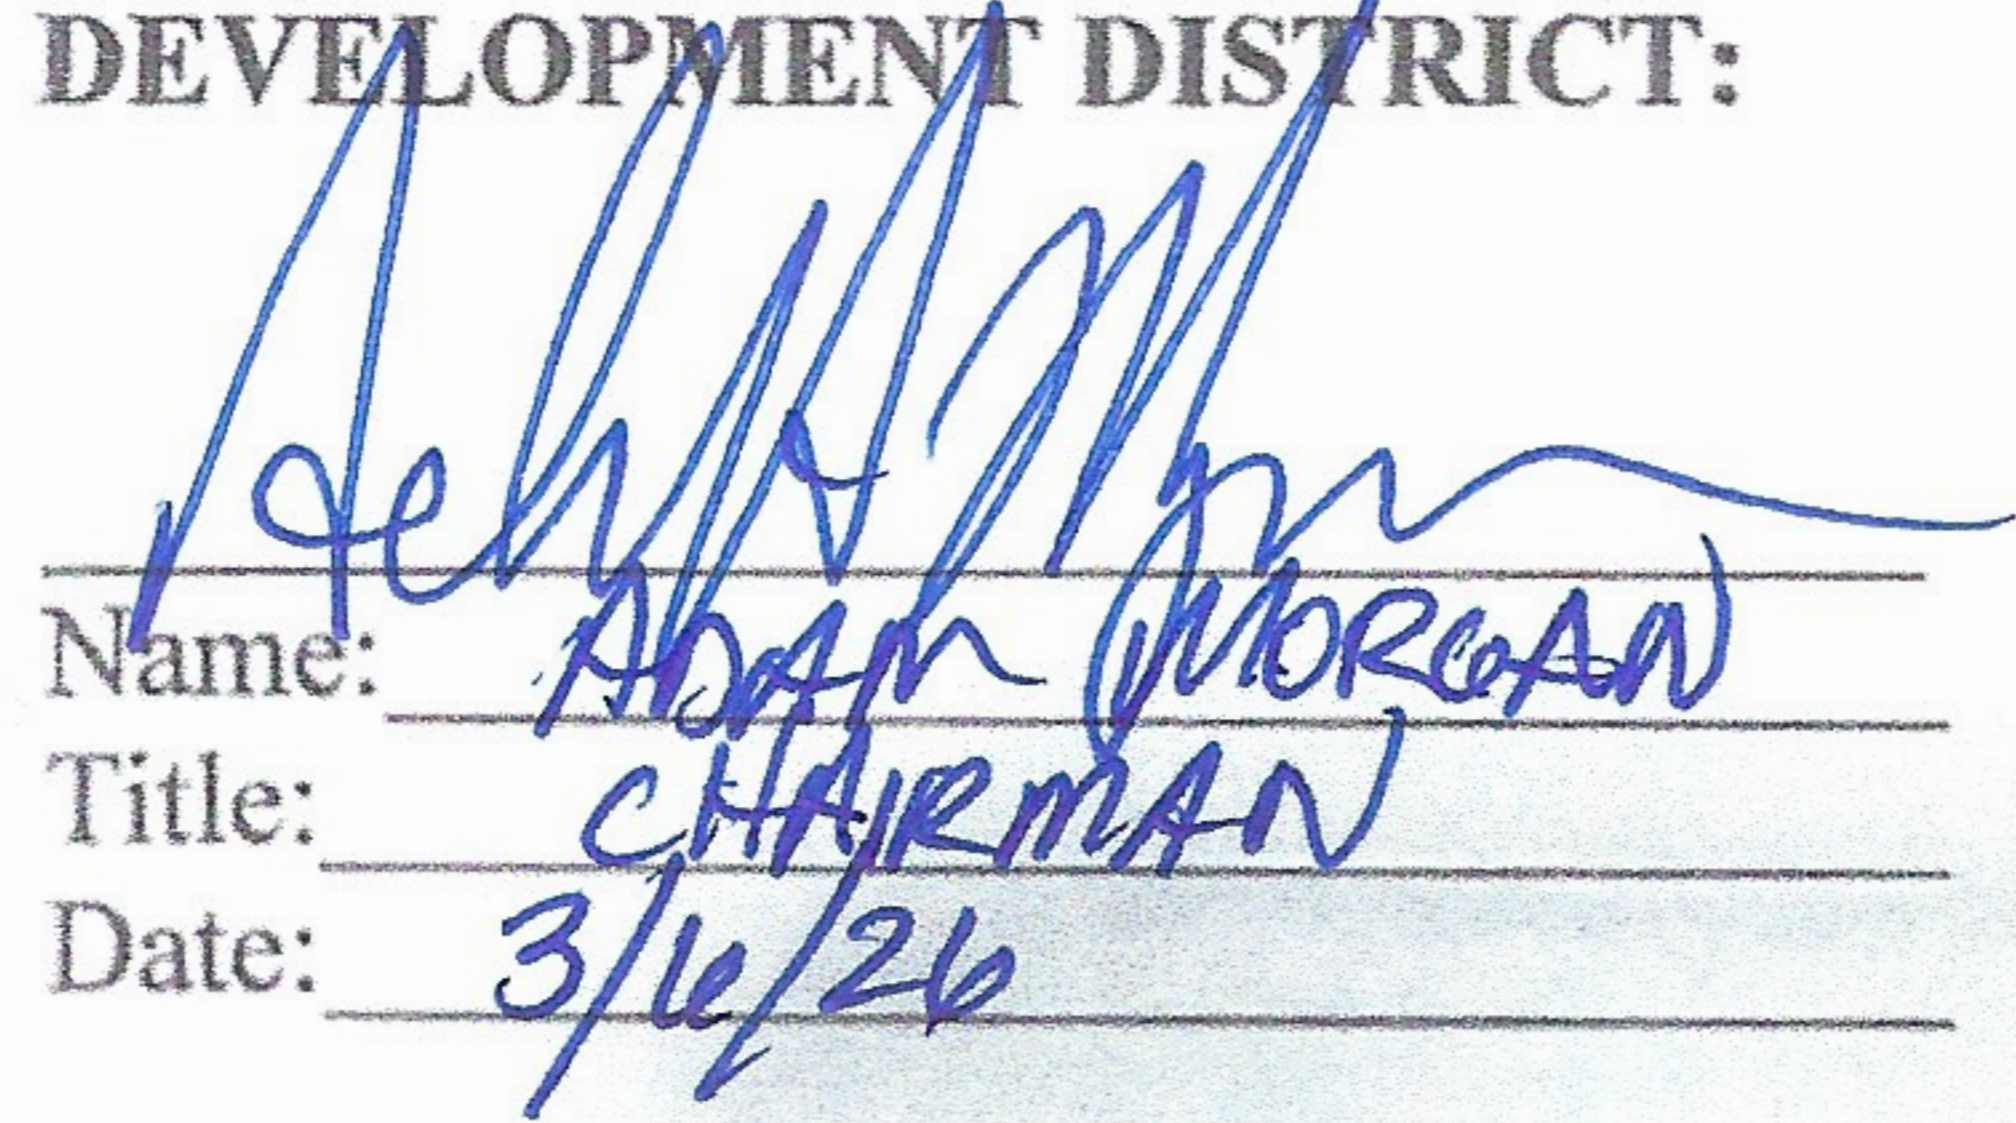 DEVELOPMENT DISTRICT:
Name: ADAM MORGAN
Title: CHAIRMAN
Date: 3/6/26